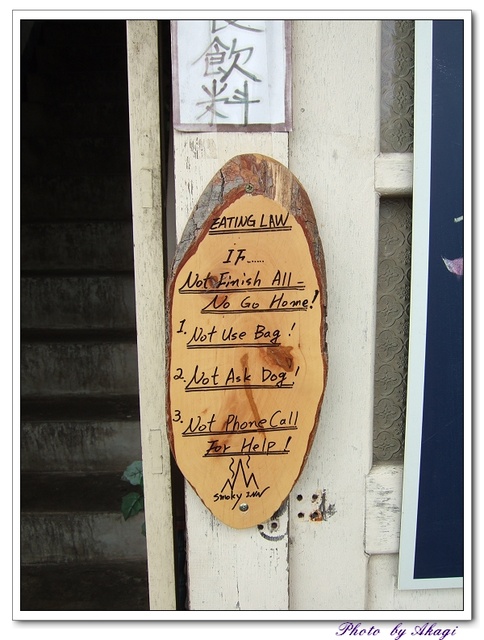 飲
料
EATING LAW
IF......
Not Finish All –
No Go Home!
1. Not Use Bag!
2. Not Ask Dog!
3. Not Phone Call
For Help!
Smoky INN
Photo by Akagi